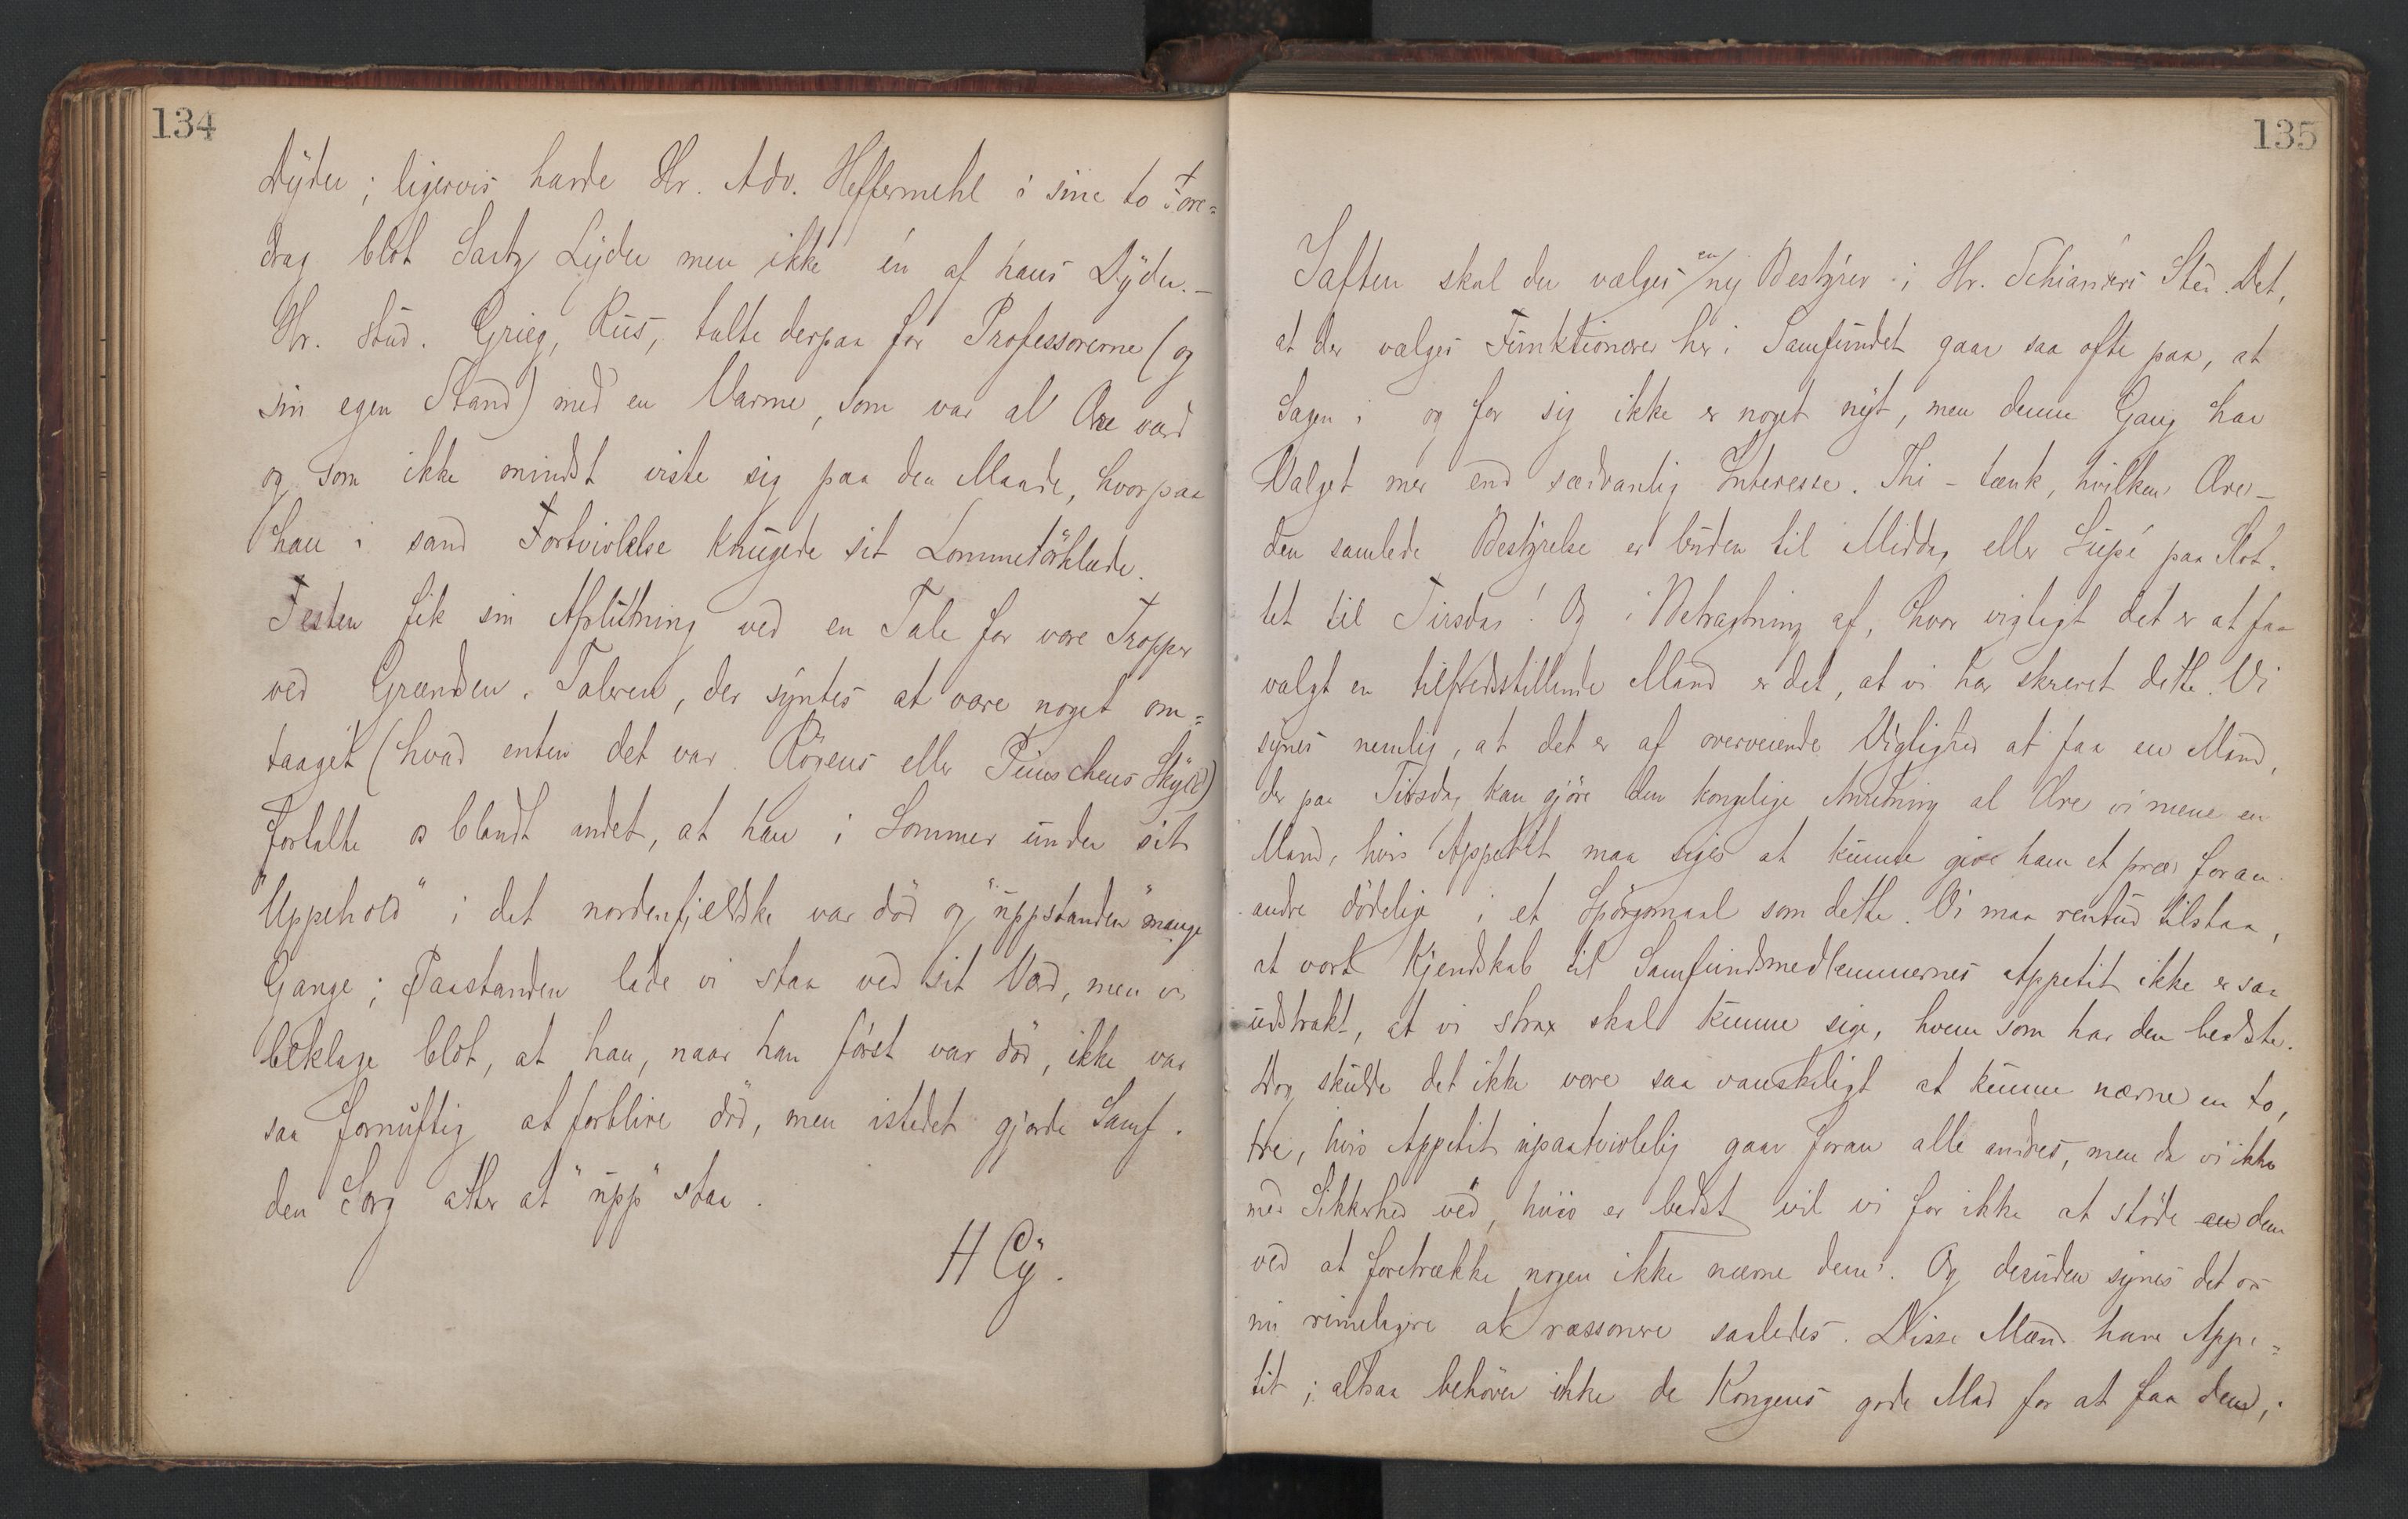 134
Dyder; ligervis havde Hr. Adv. Heffermehl i sine to Fore=
drag blot Lastz Lyder men ikke én af hans Dyder. –
Hr. stud. Grieg, Rus, talte derpaa for Professorerne (og
sin egen Stand) med en Varme, som var al Ære værd
og som ikke mindst viste sig paa den Maade, hvorpaa
han i sand Fortvivlelse knugede sit Lommetörklæde.
Festen fik sin Afslutning ved en Tale for vore Tropper
ved Grændsen. Taleren, der syntes at være noget om=
taaget (hvad enten det var Rögens eller Punschens Skyld)
fortalte os blandt andet, at han i Sommer under sit
"Uppehold" i det nordenfjeldske var död og "uppstanden" mange
Gange; Paastanden lade vi staa ved sit Værd, men vi
beklage blot, at han, naar han först var död, ikke var
saa fornuftig at forblive död, men istedet gjorde Samf.
den Sorg atter at "upp"staa.
H Cy.
135
Iaften skal der vælges en ny Bestyrer i Hr. Schianders Sted. Det,
at der vælges Funktionærer her i Samfundet gaar saa ofte paa, at
Sagen i og for sig ikke er noget nyt, men denne Gang har
Valget mer end sædvanlig Interesse. Thi – tænk, hvilken Ære –
den samlede Bestyrelse er buden til Middag eller Supé paa Slot=
tet til Tirsdag! Og i Betragtning af, hvor vigtigt det er at faa
valgt en tilfredsstillende Mand er det, at vi har skrevet dette. Vi
synes nemlig, at det er af overveiende Vigtighed at faa en Mand,
der paa Tirsdag kan gjöre den kongelige Anretning al Ære vi mene en
Mand, hvis Appetit maa siges at kunne give ham et præ foran
andre dödelige i et Spörgsmaal som dette. Vi maa rentud tilstaa,
at vort Kjendskab til Samfundsmedlemmernes Appetit ikke er saa
udstrakt, at vi strax skal kunne sige, hvem som har den bedste.
Dog skulde det ikke være saa vanskeligt at kunne nævne en to,
tre, hvis Appetit upaatvivlelig gaar foran alle andres, men da vi ikke
med Sikkerhed ved, hvis er bedst vil vi for ikke at støde dem
ved at foretrække nogen ikke nævne dem. Og desuden synes det os
nu rimeligere at ræssonere saaledes. Disse Mænd have Appe=
tit; altsaa behöver ikke de Kongens gode Mad for at faa den;